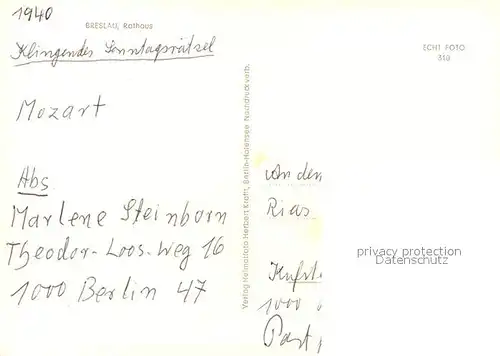 1940
BRESLAU, Rathaus
Klingendes Sonntagsrätsel
Mozart
Abs
Marlene Steinborn
Theodor-Loos-Weg 16
1000 Berlin 47
Verlag Heimatfoto Herbert Krafft, Berlin-Halensee Nachdruck verb.
ECHT FOTO
318
An den
Rias
Kufst
1000
Post
privacy protection
Datenschutz